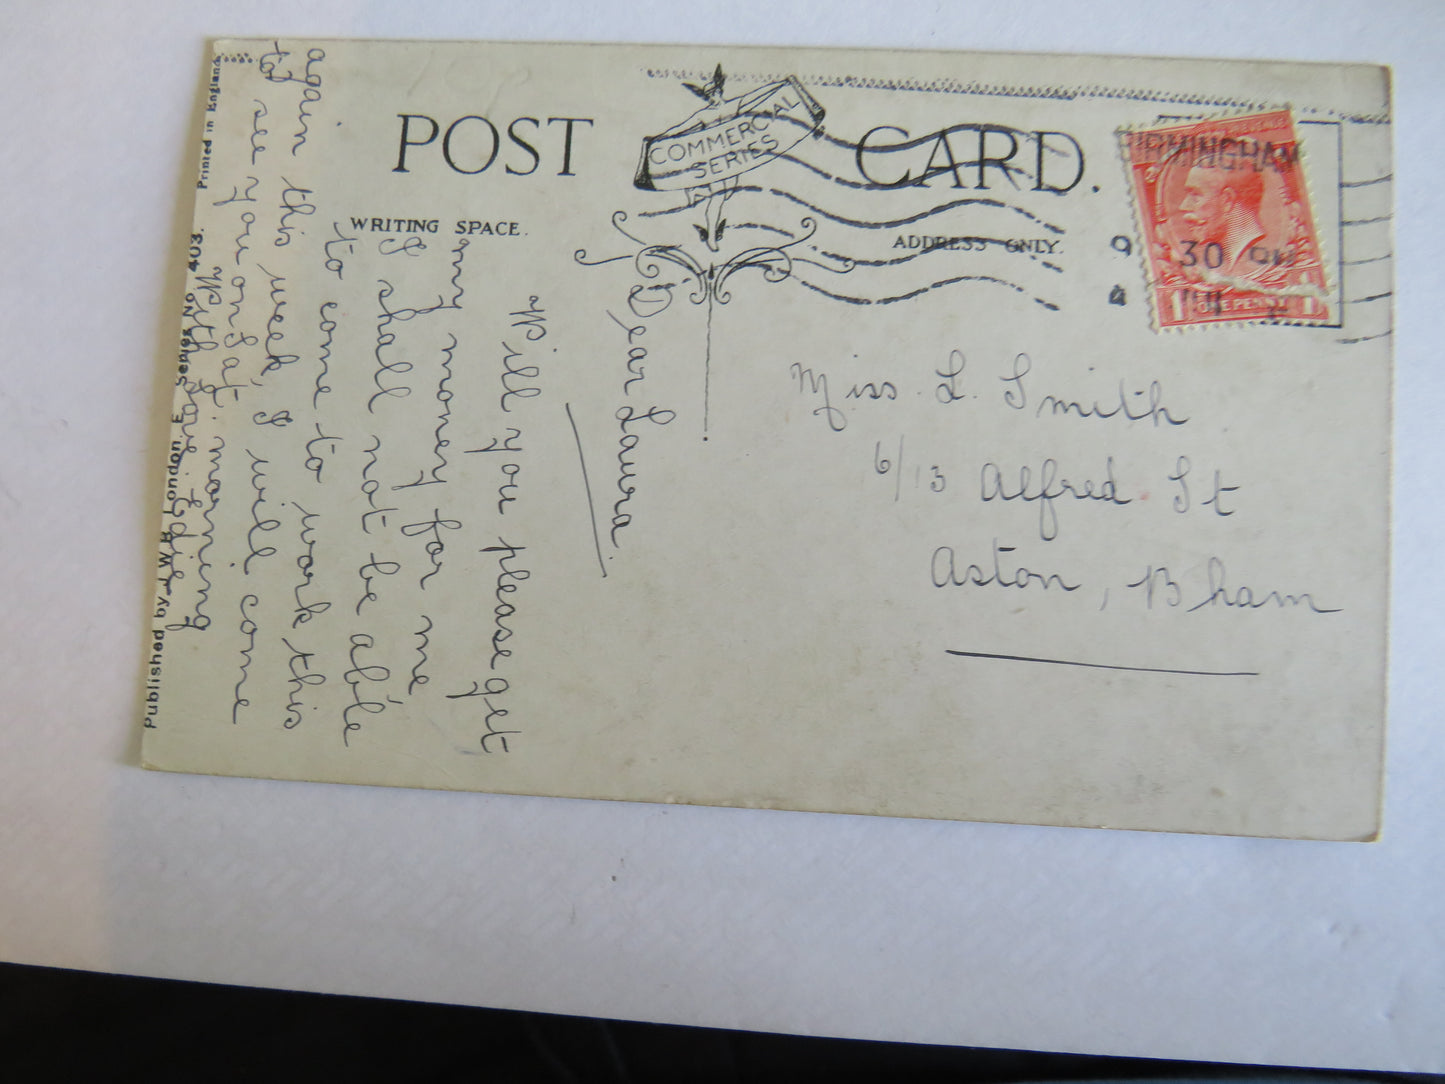 POST CARD.
COMMERCIAL
SERIES
WRITING SPACE.
ADDRESS ONLY.
BIRMINGHAM
9 30 PM
ONE PENNY
Dear Laura.
Will you please get
my money for me
I shall not be able
to come to work this
again this week, I will come
to see you on Sat. morning
With love
Miss. L. Smith
6/13 Alfred St
Aston, B'ham
Published by J.W.B. London. E. Series No 403. Printed in England.